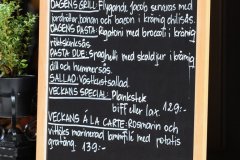 DAGENS GRILL: Flygande jacob serveras med
jordnötter, banan och bacon i krämig chilisås.
DAGENS PASTA: Rigatoni med broccoli i krämig
rödlökssås.
PASTA DUE: Spaghetti med skaldjur i krämig
dill och hummersås.
SALLAD: Västkustsallad.
VECKANS SPECIAL: Plankstek
biff eller lax. 129:-
VECKANS Á LA CARTE: Rosmarin och
vitlöks marinerad lammfilé med potatis
gratäng. 139:-